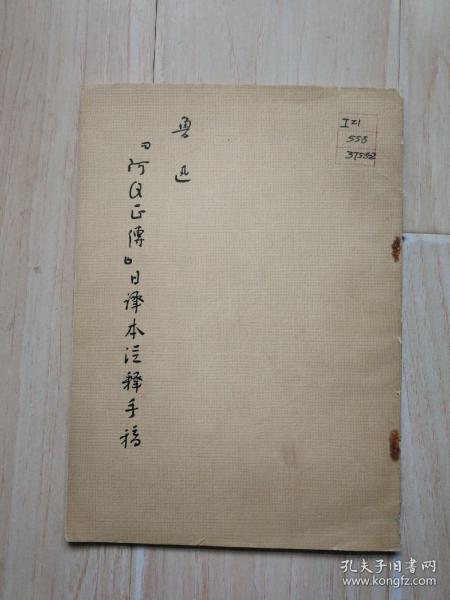 鲁迅
『阿Q正傳』日译本注释手稿
I21
558
37552
孔夫子旧书网
www.kongfz.com